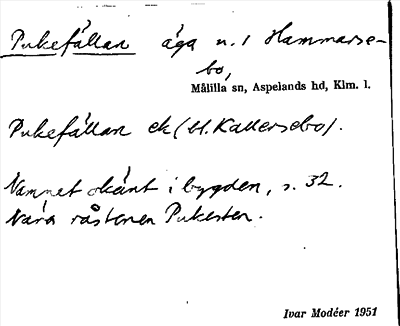 Pukefällan äga n. 1 Hammarse-
bo,
Målilla sn, Aspelands hd, Klm. l.
Pukefällan ek (bl. Kallersebo).
Namnet okänt i bygden, s. 32.
Nära råstenen Pukesten.
Ivar Modéer 1951